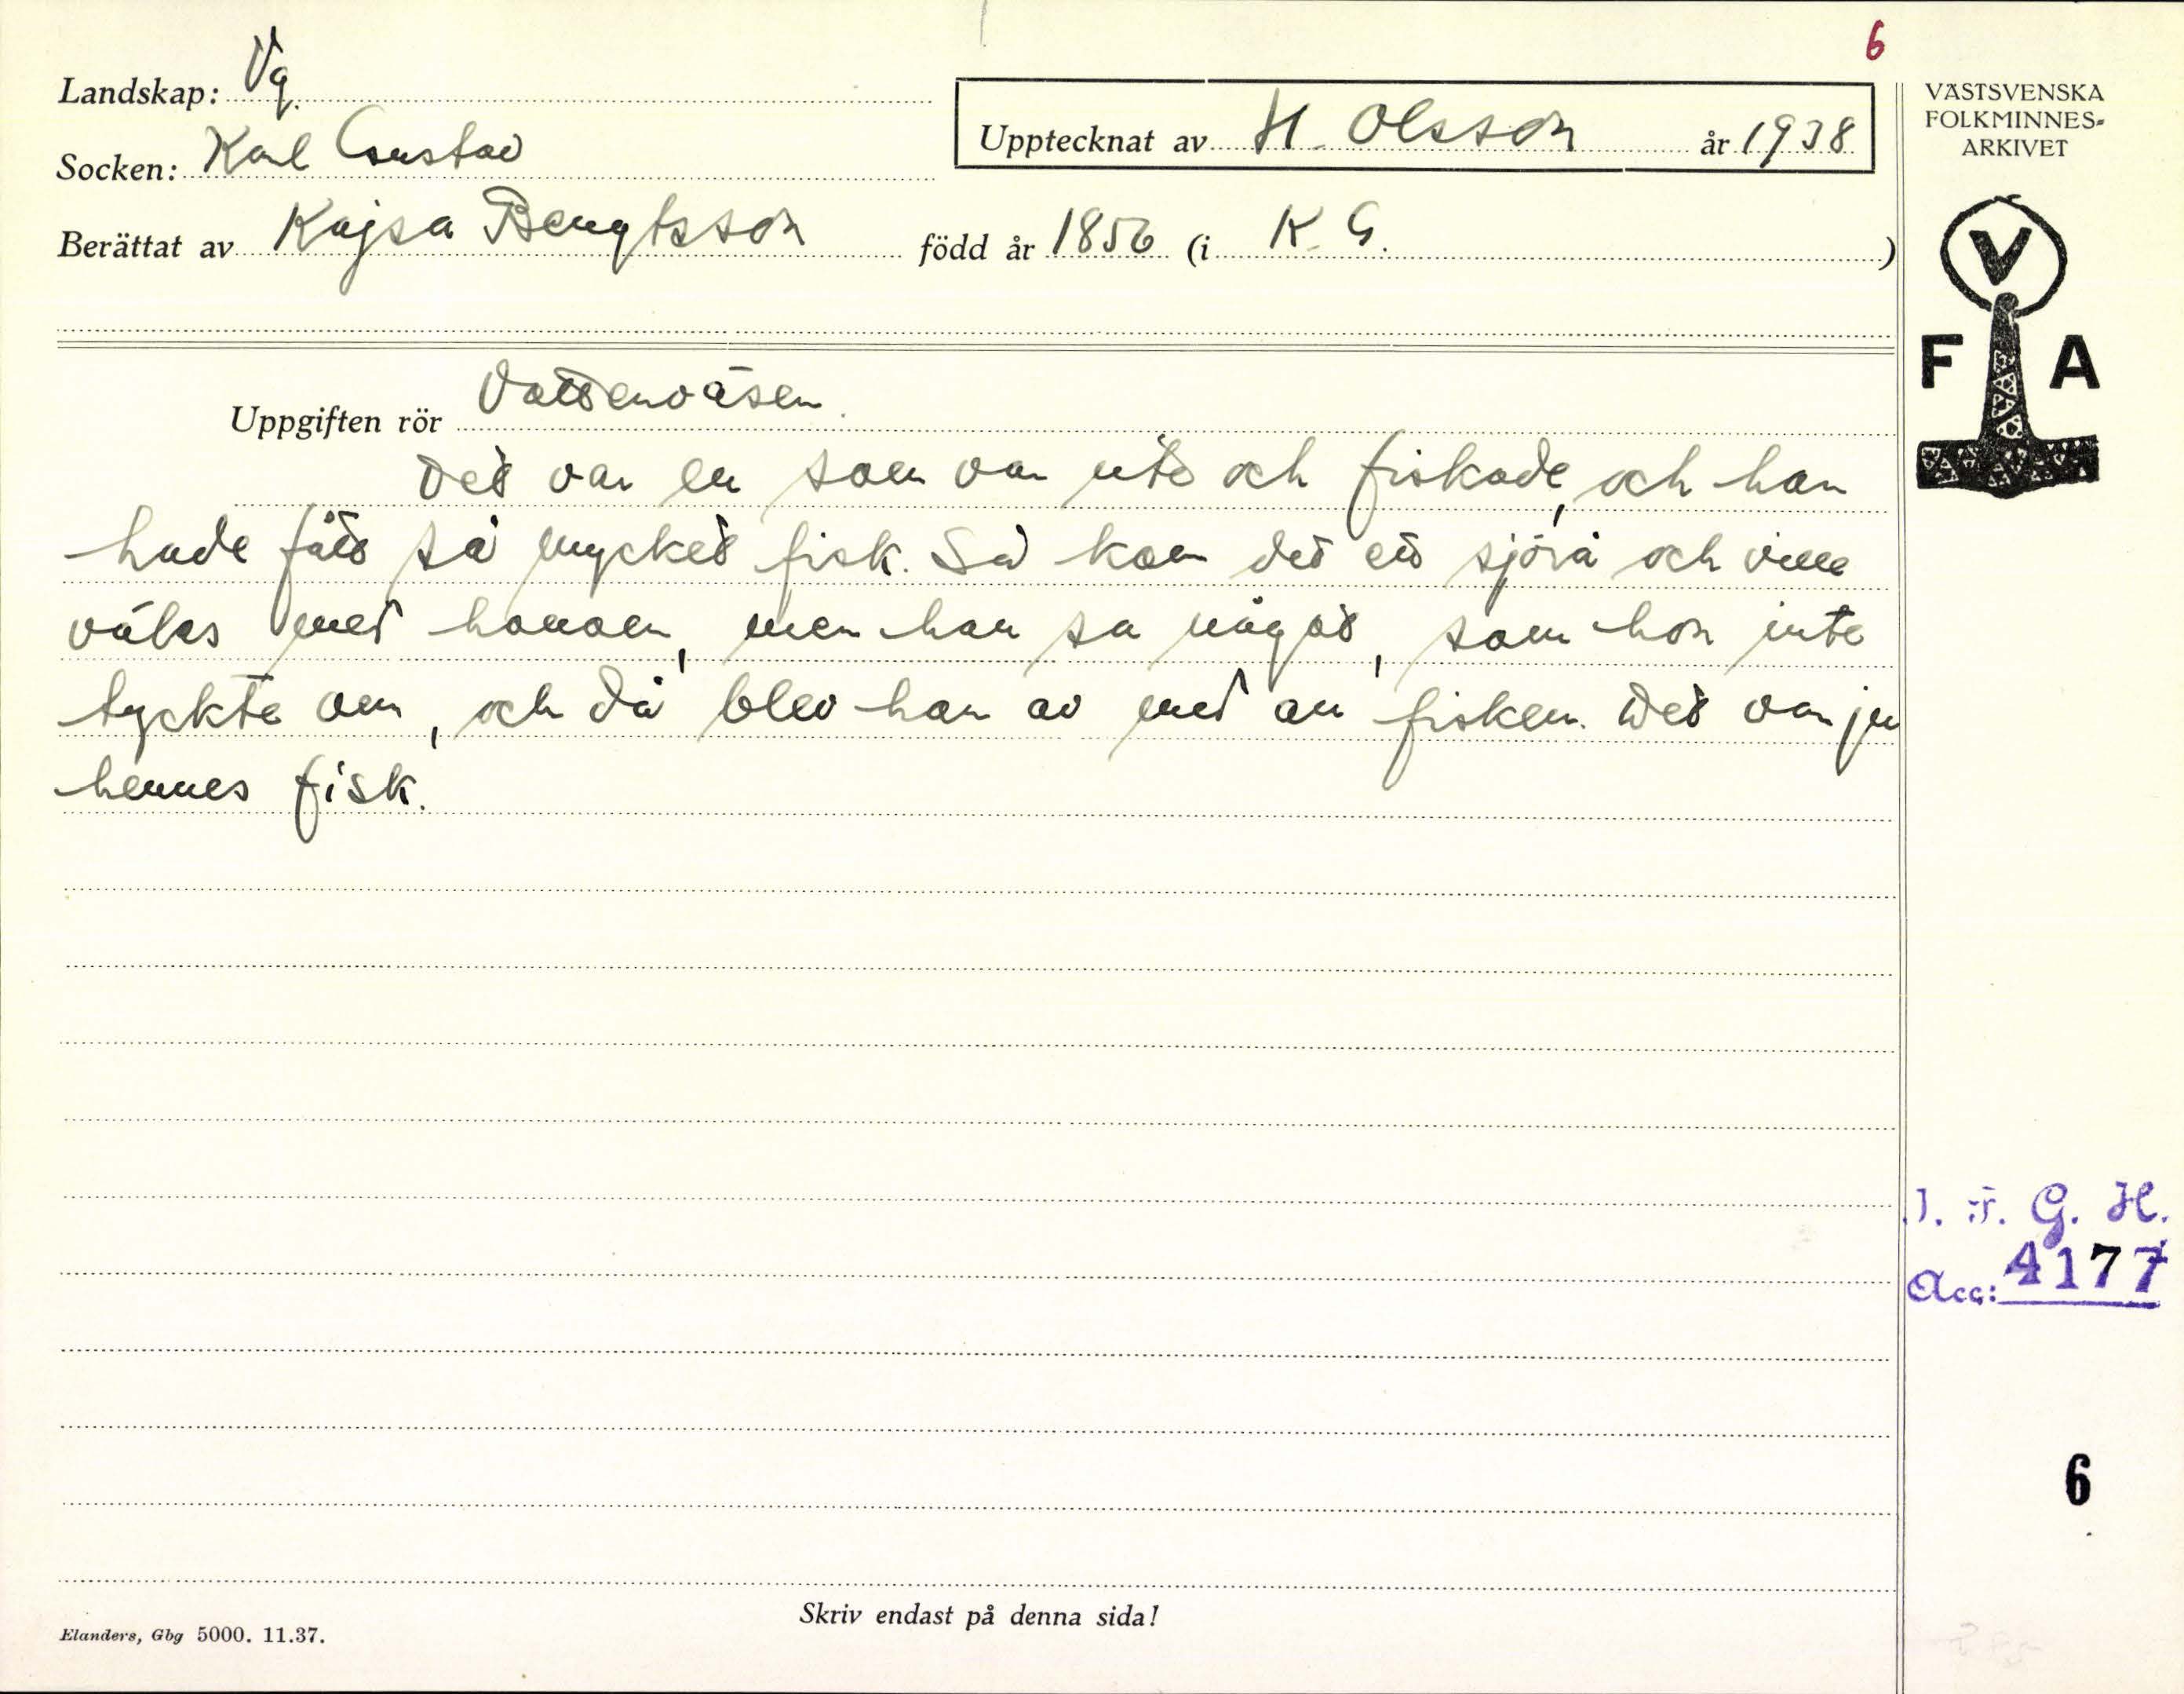 6
Landskap: Vg.
Socken: Karl Gustav
Upptecknat av H. Olsson år 1938
VÄSTSVENSKA
FOLKMINNES-
ARKIVET
Berättat av Kajsa Bengtsson född år 1856 (i K. G. )
V
F A
Uppgiften rör Vattenväsen.
Det var en som var ute och fiskade, och han
hade fått så mycket fisk. Så kom det ett sjörå och ville
växla med honom, men han sa något, som hon inte
tyckte om, och då blev han av med all fisken. Det var ju
hennes fisk.
I. F. G. H.
Acc: 4177
6
Skriv endast på denna sida!
Elanders, Gbg 5000. 11.37.